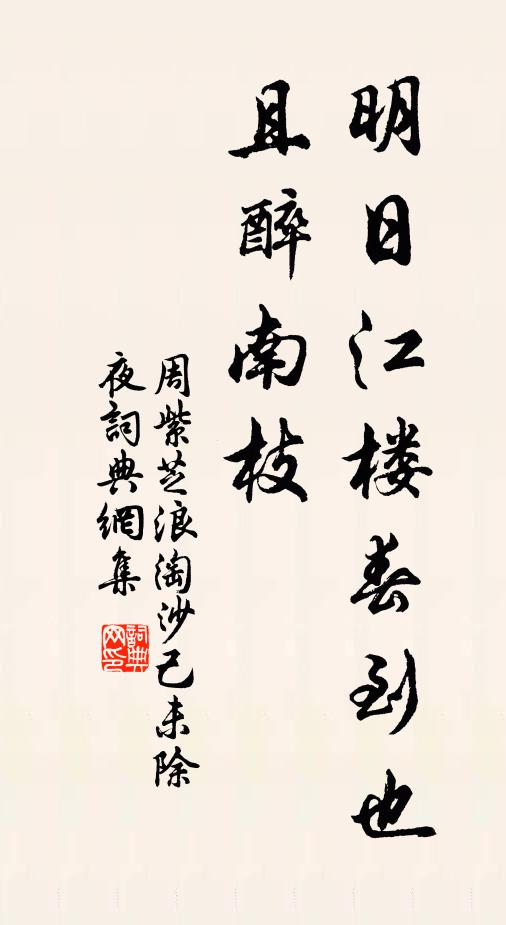 明日江楼春到也
且醉南枝
周紫芝浪淘沙己未除
夜詞典網集
詞典
网印